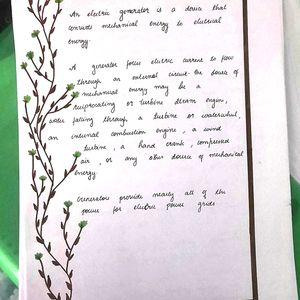 An electric generator is a device that
converts mechanical energy to electrical
energy.
A generator forces electric current to flow
through an external circuit. the source of
mechanical energy may be a
reciprocating or turbine steam engine,
water falling through a turbine or waterwheel,
an internal combustion engine, a wind
turbine, a hand crank, compressed
air, or any other source of mechanical
energy.
Generators provide nearly all of the
power for electric power grids